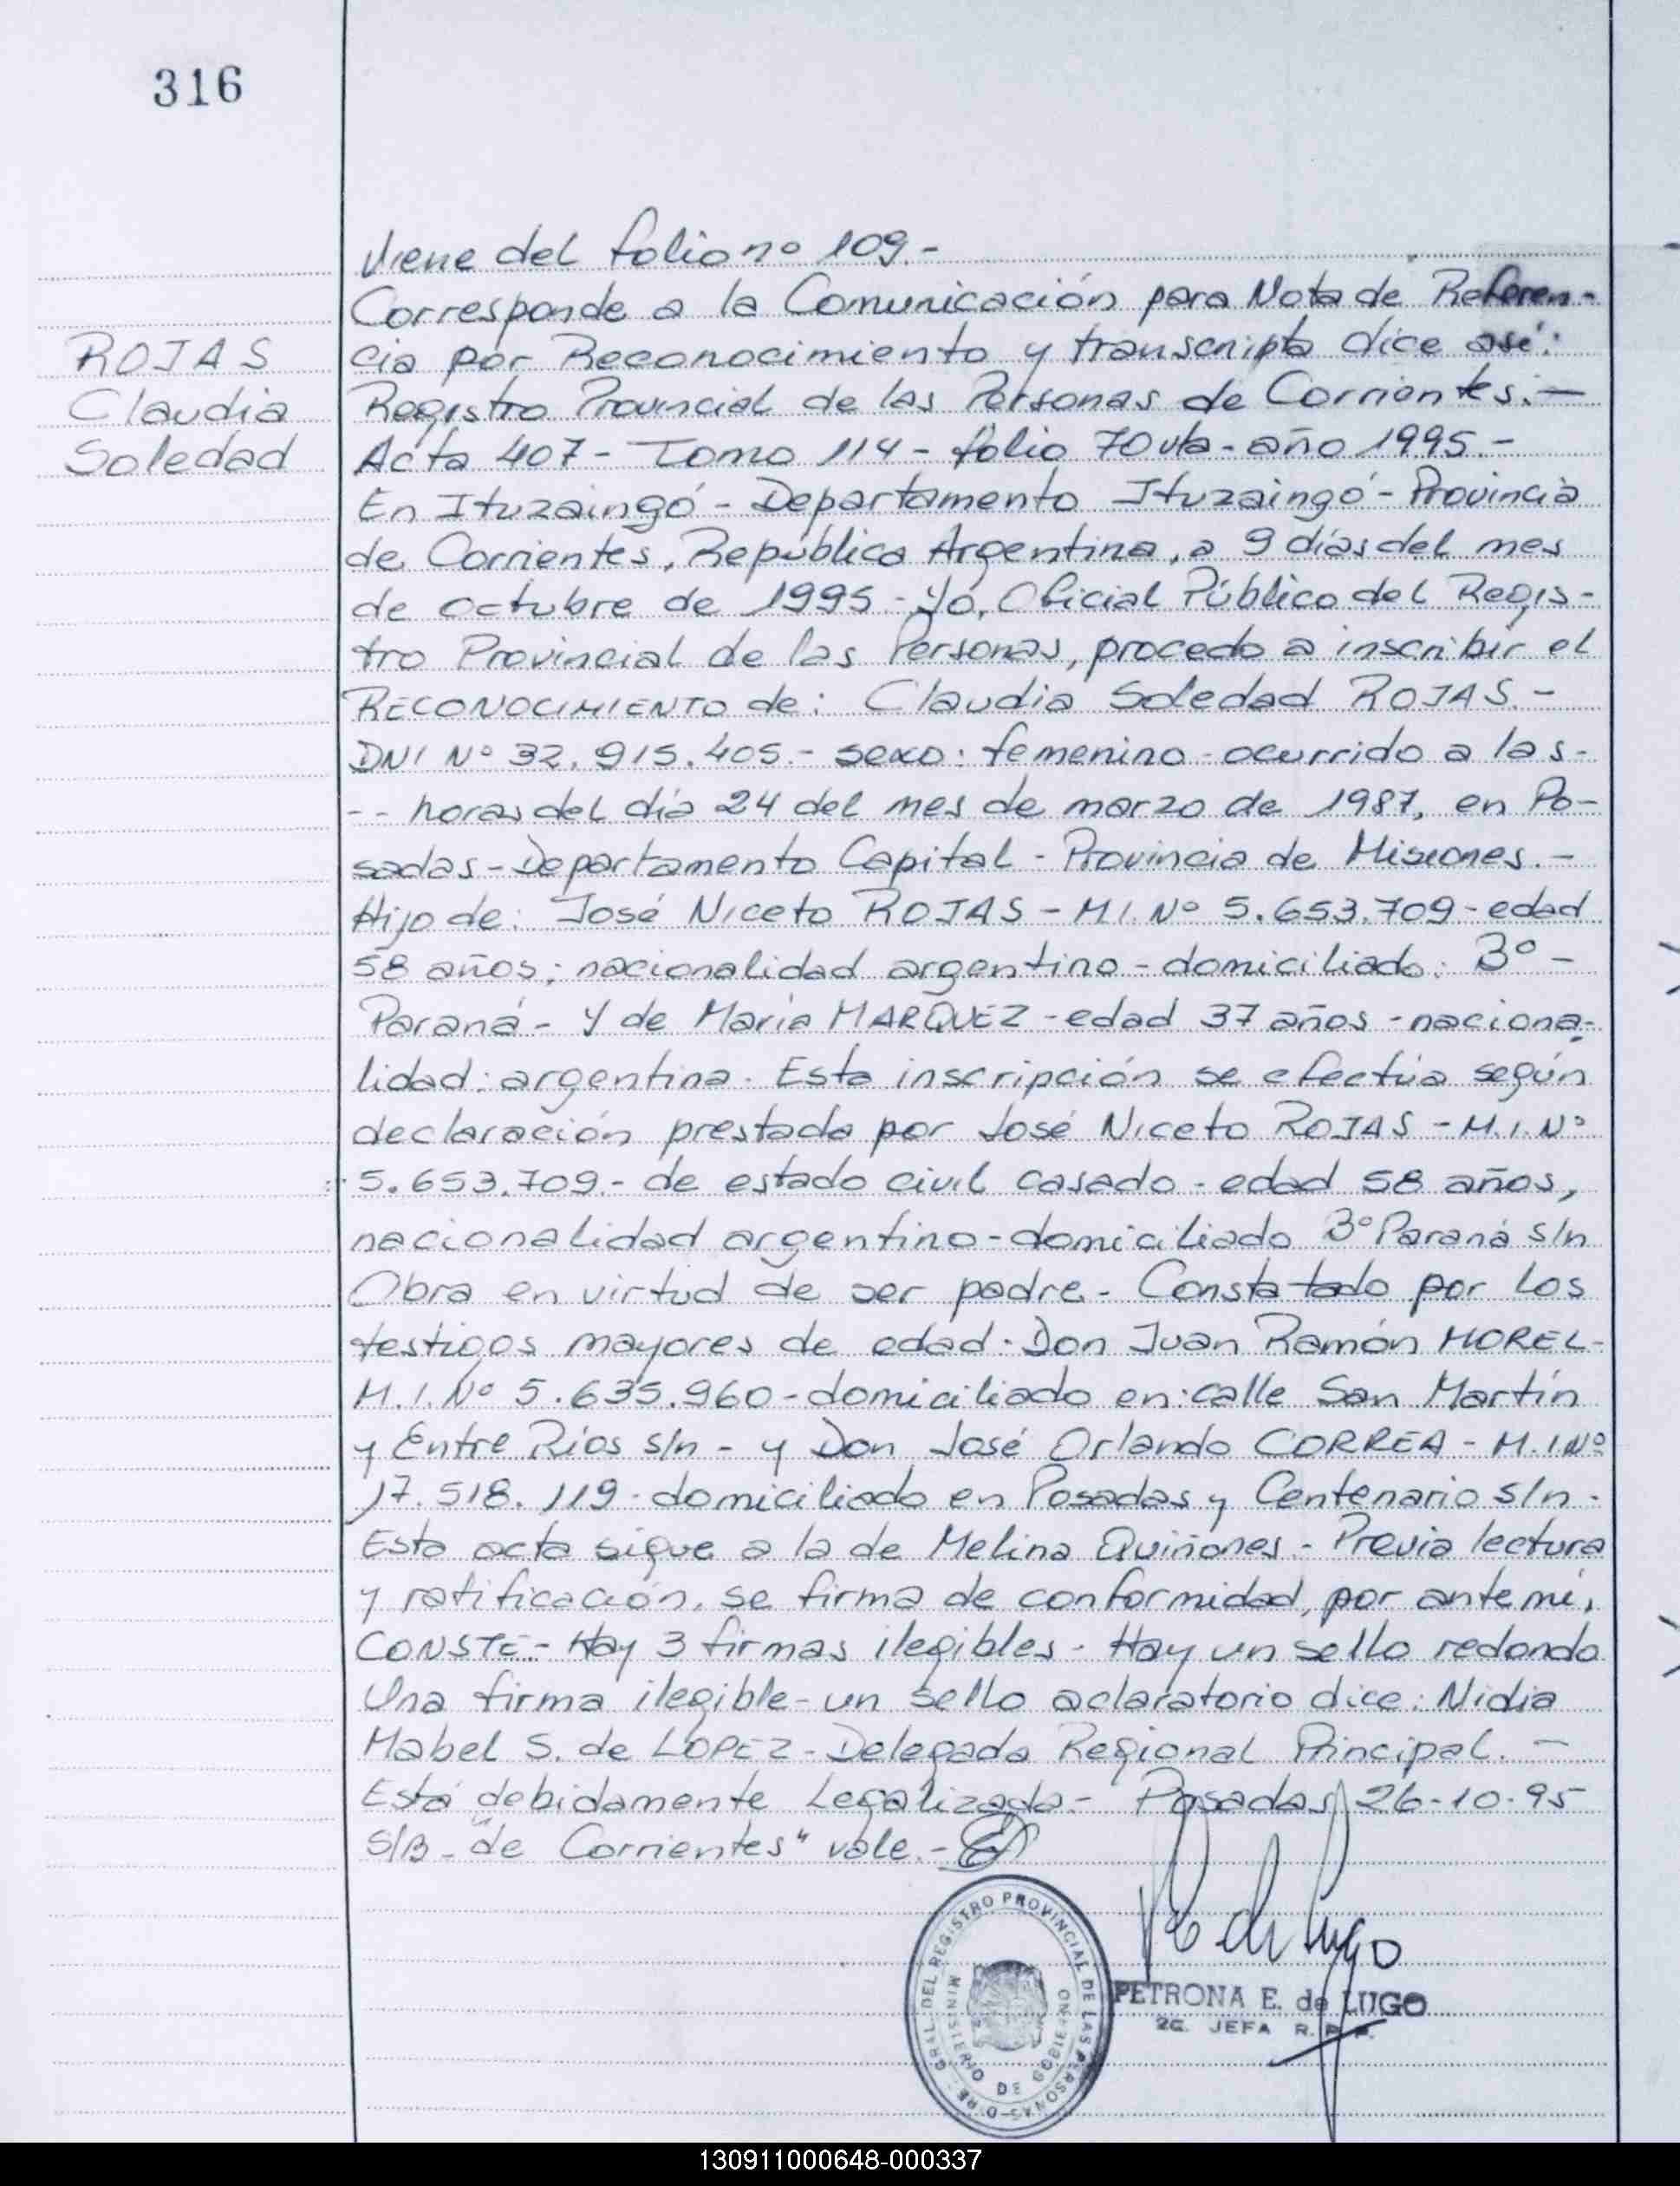 316
Viene del folio nº 109.-
Corresponde a la Comunicación para Nota de Referen-
cia por Reconocimiento y transcripta dice así:
ROJAS
Claudia
Soledad
Registro Provincial de las Personas de Corrientes.-
Acta 407 - Tomo 114 - folio 70 vta - año 1995.-
En Ituzaingó - Departamento Ituzaingó - Provincia
de Corrientes, República Argentina, a 9 días del mes
de octubre de 1995 - Yo, Oficial Público del Regis-
tro Provincial de las Personas, procedo a inscribir el
RECONOCIMIENTO de: Claudia Soledad ROJAS.-
DNI Nº 32.915.405.- sexo: femenino - ocurrido a las-
-- horas del día 24 del mes de marzo de 1987, en Po-
sadas - Departamento Capital - Provincia de Misiones.-
Hijo de: José Niceto ROJAS - M.I. Nº 5.653.709 - edad
58 años; nacionalidad argentino - domiciliado: Bº -
Paraná - y de María MARQUEZ - edad 37 años - naciona-
lidad: argentina. Esta inscripción se efectúa según
declaración prestada por José Niceto ROJAS - M.I. Nº
5.653.709.- de estado civil casado - edad 58 años,
nacionalidad argentino - domiciliado Bº Paraná s/n
Obra en virtud de ser padre - Constatado por los
testigos mayores de edad. Don Juan Ramón MOREL-
M.I. Nº 5.635.960 - domiciliado en: calle San Martín
y Entre Ríos s/n - y Don José Orlando CORREA - M.I Nº
17.518.119 - domiciliado en Posadas y Centenario s/n -
Esta acta sigue a la de Melina Quiñones.- Previa lectura
y ratificación, se firma de conformidad, por ante mí,
CONSTE.- Hay 3 firmas ilegibles - Hay un sello redondo
Una firma ilegible - un sello aclaratorio dice: Nidia
Mabel S. de LOPEZ - Delegada Regional Principal. -
Está debidamente Legalizada.- Posadas, 26-10-95
S/B - "de Corrientes" vale.-
GRAL. DEL REGISTRO PROVINCIAL DE LAS PERSONAS
MINISTERIO DE GOBIERNO
PETRONA E. de LUGO
2ª JEFA R.P.P.
130911000648-000337